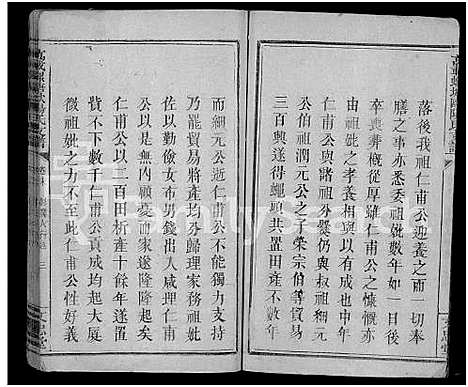 落後我祖仁甫公迎養之而一切奉
膳之事亦悉委祖妣數年如一日後
卒喪葬概從厚雖仁甫公之慷慨亦
祖妣之孝養相與以有成也中年
仁甫公與諸祖外爨仍與叔祖細元
公伯順元公之子榮宗伯等貿易
三百輿遂得蠅頭共置田產不數年
而細元公逝仁甫公不能獨力支持
乃罷貿易將產均分歸理家務祖妣
於是每以女功佐粥錢出入咸理仁甫
公以是無內顧憂而家遂隆隆起矣
仁甫公以二百田析產十餘年後遂
貲不下數千仁甫公成均起大廈
微祖妣之力不至此仁甫公性好義